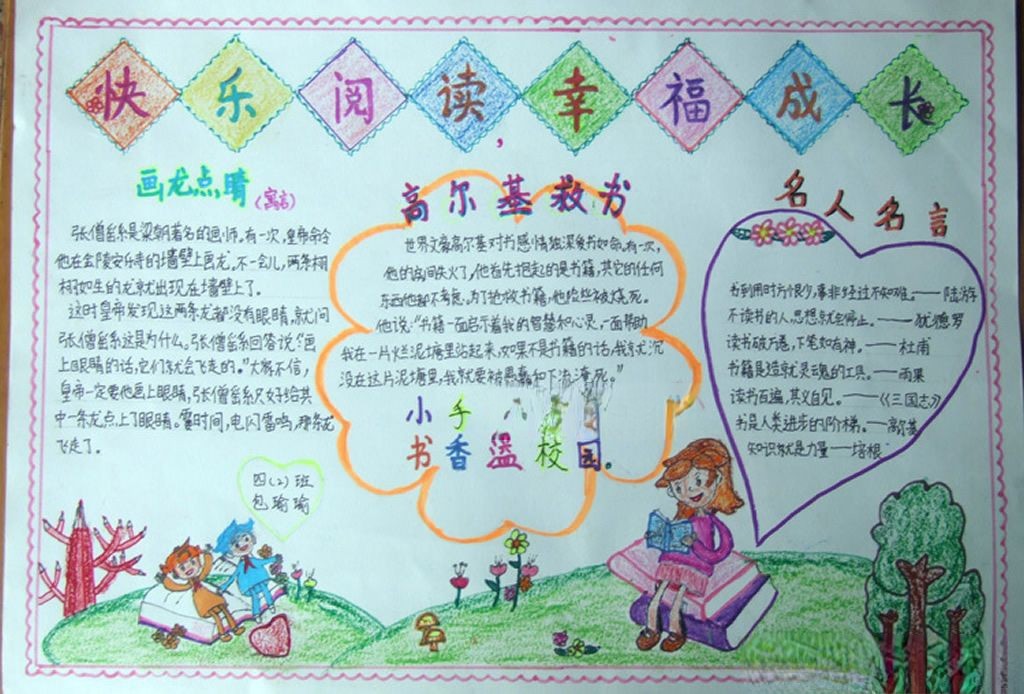 快乐阅读,幸福成长
画龙点睛(寓言)
张僧繇是梁朝著名的画师。有一次,皇帝命令
他在金陵安乐寺的墙壁上画龙。不一会儿,两条栩
栩如生的龙就出现在墙壁上了。
这时皇帝发现这两条龙都没有眼睛,就问
张僧繇这是为什么。张僧繇回答说:“画
上眼睛的话,它们就会飞走的。”大家不信,
皇帝一定要他画上眼睛,张僧繇只好给其
中一条龙点上了眼睛。霎时间,电闪雷鸣,那条龙
飞走了。
四(2)班
包瑜瑜
高尔基救书
世界文豪高尔基对书感情独深,爱书如命。有一次,
他的房间失火了,他首先抱起的是书籍,其它的任何
东西他都不考虑。为了抢救书籍,他险些被烧死。
他说:“书籍一面启示着我的智慧和心灵,一面帮助
我在一片烂泥塘里站起来,如果不是书籍的话,我就沉
没在这片泥塘里,我就要被愚蠢和下流淹死。”
小手
书香溢校园。
名人名言
书到用时方恨少,事非经过不知难。——陆游
不读书的人,思想就会停止。——狄德罗
读书破万卷,下笔如有神。——杜甫
书籍是造就灵魂的工具。——雨果
读书百遍,其义自见。——《三国志》
书是人类进步的阶梯。——高尔基
知识就是力量——培根